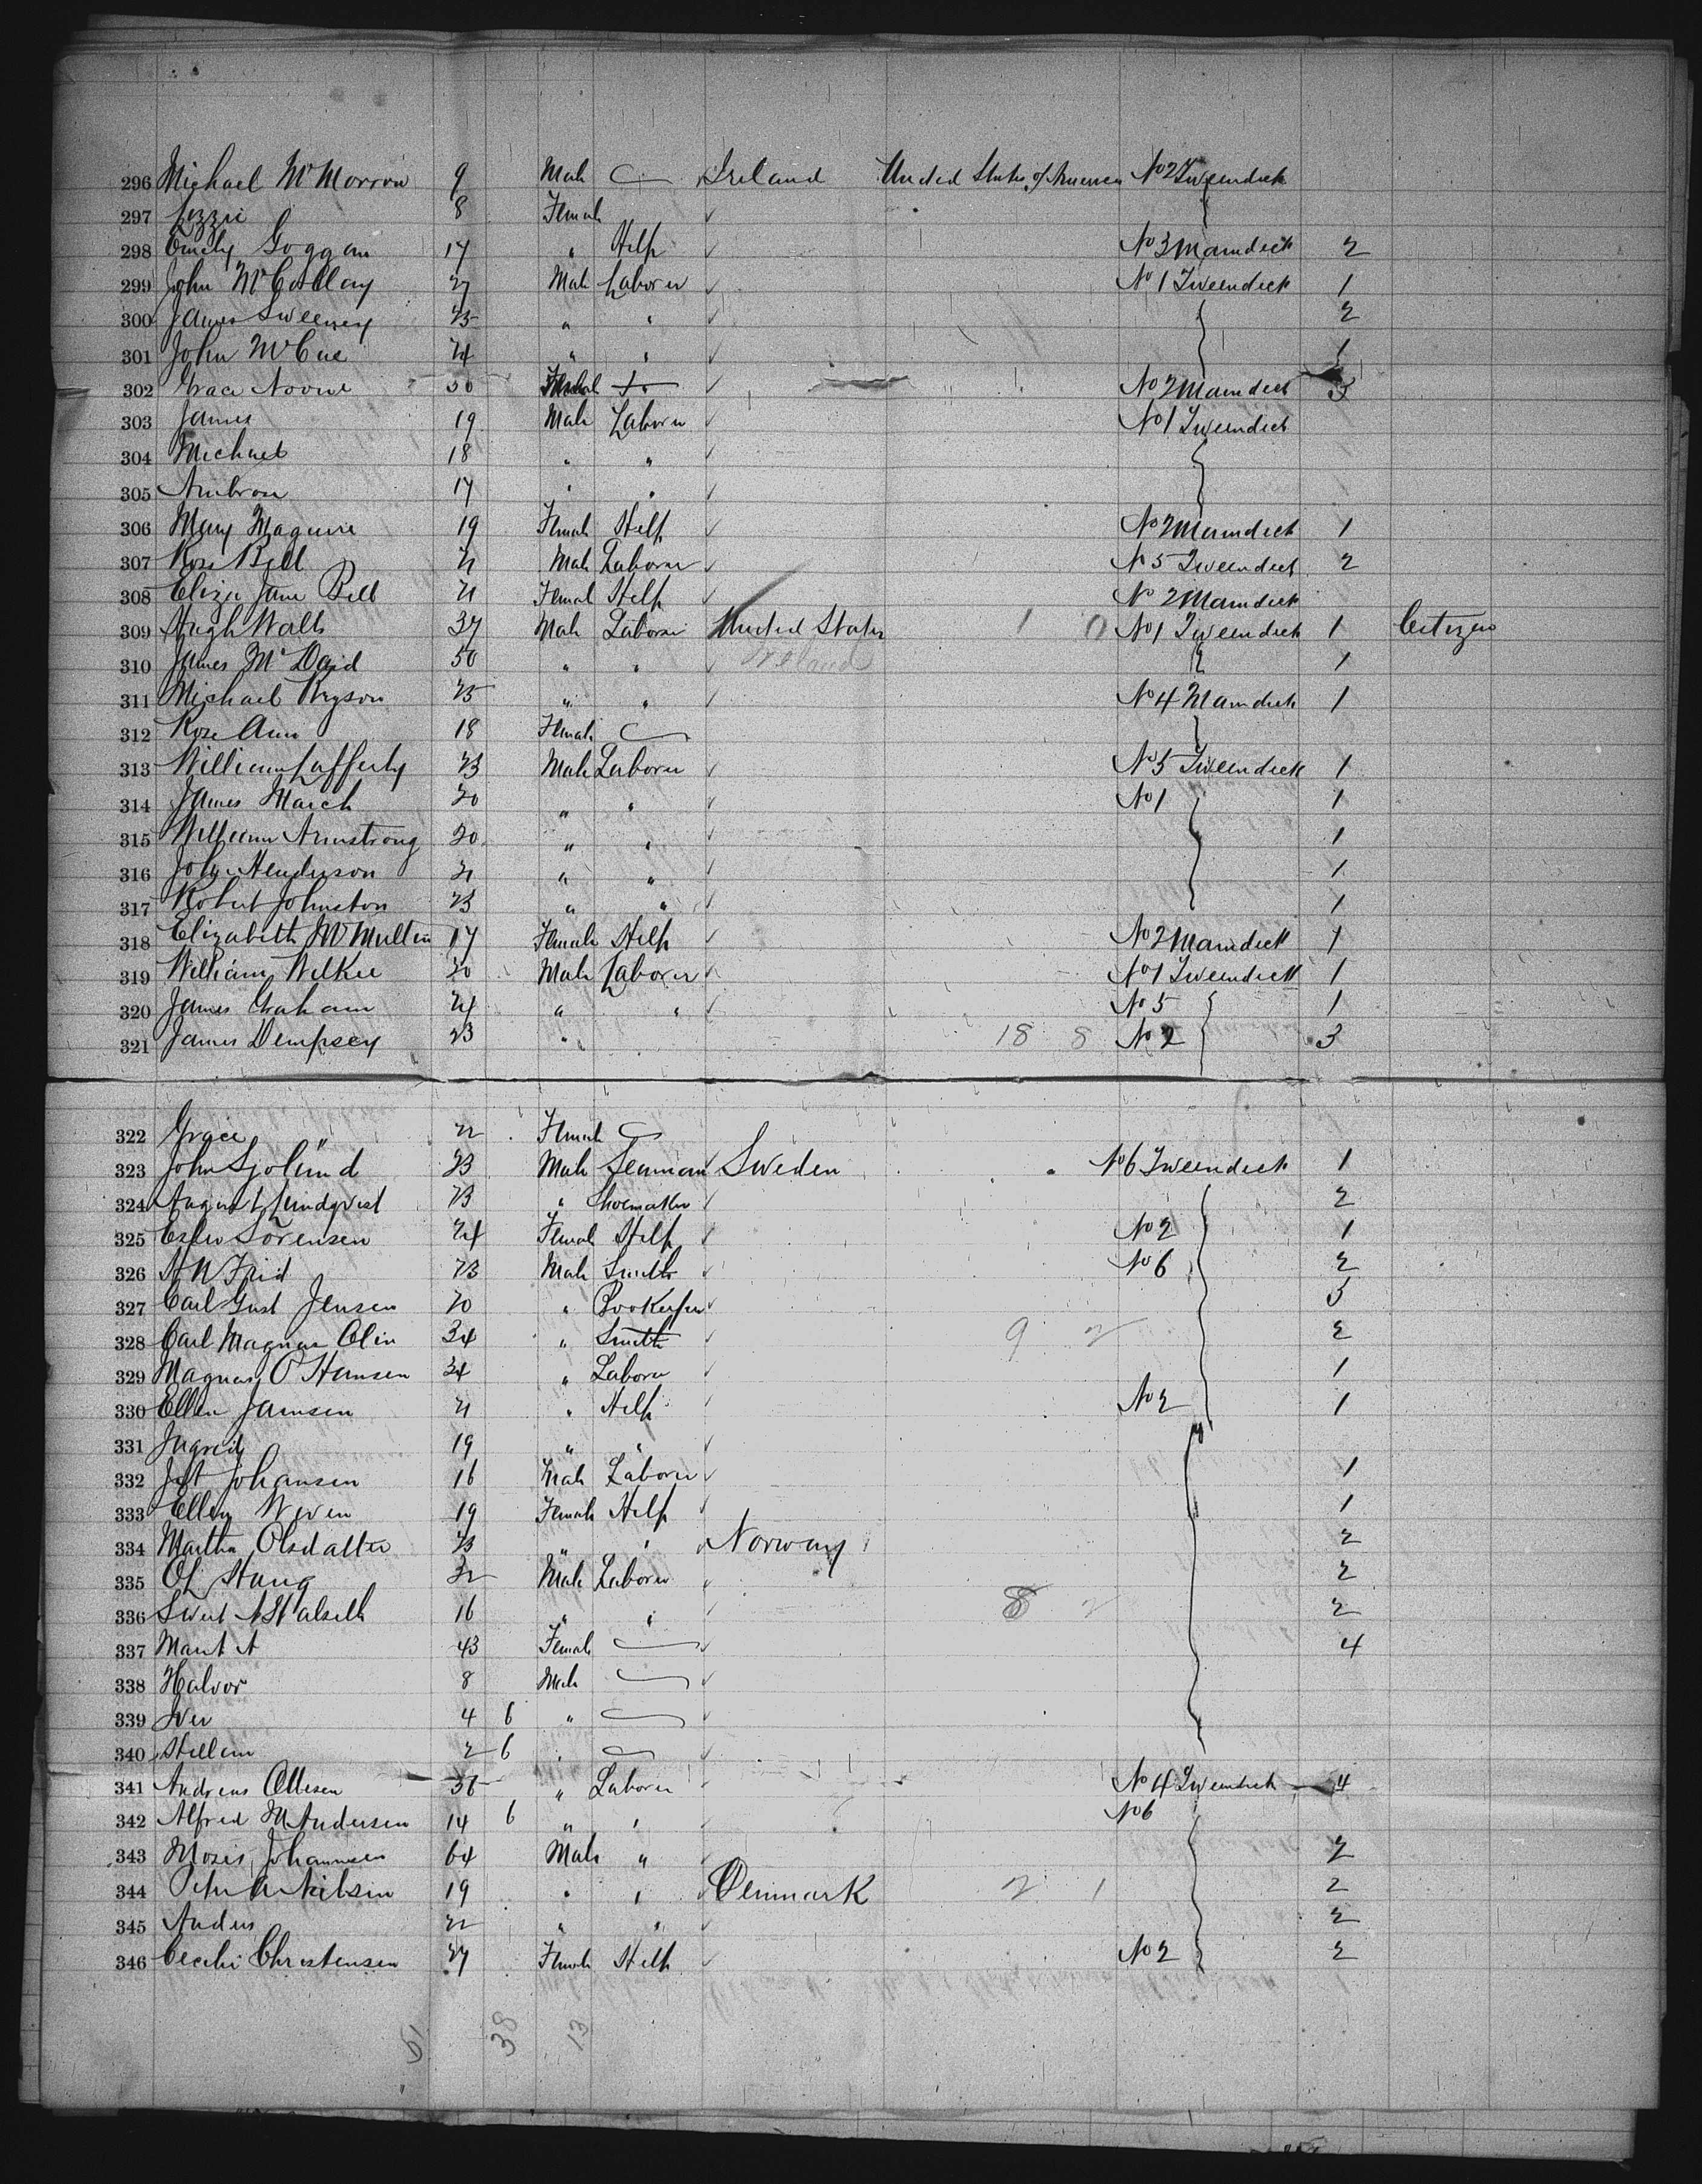 296 Michael McMorrow 9 Male Ireland United States of America No 2 Tweendeck
297 Lizzie 8 Female
298 Emely Goggan 17 " Help No 3 Maindeck 2
299 John McCollay 27 Male Laborer No 1 Tweendeck 1
300 James Sweeney 25 " " 2
301 John McCue 24 " " 1
302 Grace Noone 50 Female No 2 Maindeck 3
303 James 19 Male Laborer No 1 Tweendeck
304 Michael 18 " "
305 Ambrose 17 " "
306 Mary Maguire 19 Female Help No 2 Maindeck 1
307 Ross Bell 21 Male Laborer No 5 Tweendeck 2
308 Eliza Jane Bell 21 Female Help No 2 Maindeck
309 Hugh Walls 37 Male Laborer United States 1 0 No 1 Tweendeck 1 Citizen
310 James McDaid 50 " " Ireland 1
311 Michael Bryson 25 " " No 4 Maindeck 1
312 Rose Ann 18 Female
313 William Lafferty 23 Male Laborer No 5 Tweendeck 1
314 James March 20 " " No 1 1
315 William Armstrong 20 " " 1
316 John Henderson 21 " " 1
317 Robert Johnston 23 " " 1
318 Elizabeth McMullen 17 Female Help No 2 Maindeck 1
319 William Wilkie 20 Male Laborer No 1 Tweendeck 1
320 James Graham 24 " " No 5 1
321 James Dempsey 23 " 18 8 No 2 3
322 Grace " 22 Female
323 John Sjolund 23 Male Seaman Sweden No 6 Tweendeck 1
324 August Lundqvist 23 " Shoemaker 2
325 Ester Sorensen 24 Female Help No 2 1
326 A W Frid 23 Male Smith No 6 2
327 Carl Gust Jensen 20 " Bookeeper 3
328 Carl Magnus Olin 34 " Smith 9 2 2
329 Magnus P Hansen 34 " Laborer 1
330 Ellen Jamsen 21 " Help No 2 1
331 Ingrid 19 " "
332 Johansen 16 Male Laborer 1
333 Ellen 19 Female Help 1
334 Martha Olsdatter 23 " " Norway 2
335 Ol Haug 32 Male Laborer 2
336 16 " " 8 2 2
337 Marit A 43 Female 4
338 Halvor 8 Male
339 Iver 4 6 "
340 2 6 "
341 Andreas Ottesen 38 " Laborer No 4 Tweendeck 4
342 Alfred M Andersen 14 6 " " No 6
343 Moses Johannesen 64 Male " 2
344 Peter A Nielsen 19 " " Denmark 2 1 2
345 Anders 22 " " 2
346 Cecelie Christensen 27 Female Help No 2 2
51 38 13